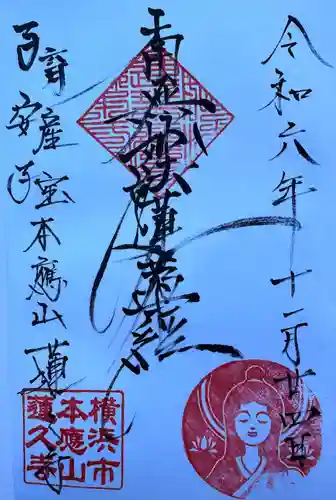 令和六年十一月廿四日
南無妙法蓮華経
子育
安産
子宝
本應山 蓮久寺
横浜市
本應山
蓮久寺